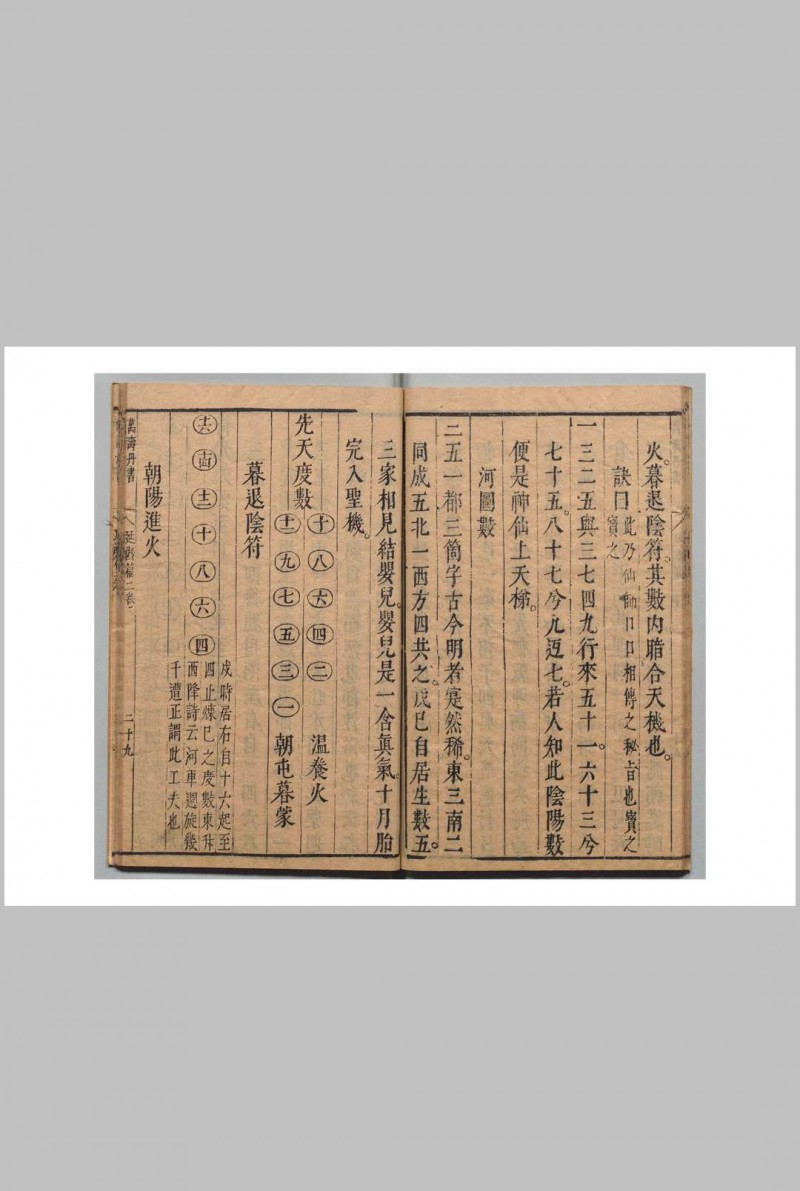 火。暮退陰符。其數内暗合天機也。
訣曰此乃仙師口口相傳之秘旨也寶之
寶之
一三二五與三七四九行來五十一。六十三兮
七十五。八十七兮九迈七。若人知此陰陽數
便是神仙上天梯。
河圖數
三五一都三箇字古今明者寔然稀。東三南二
同成五北一西方四共之。戊巳自居生數五。
三家相見結嬰兒。嬰兒是一含眞氣。十月胎
完入聖機。
先天度數 十 八 六 四 二 溫養火
十一 九 七 五 三 一 朝屯暮蒙
暮退陰符
十六 十四 十二 十 八 六 四
戌時居右自十六起至
四止煉巳之度數東升
西降詩云河車週旋幾
千遭正謂此工夫也
朝陽進火
萬壽丹書
二卷
三十九